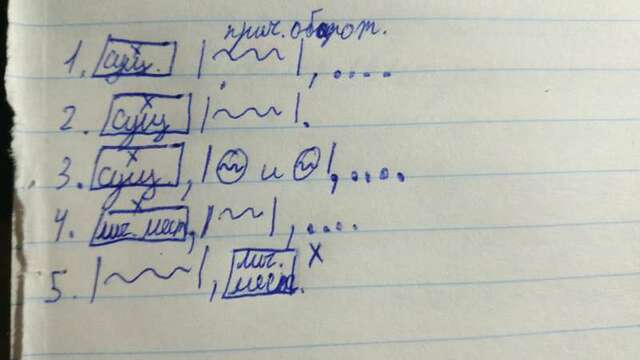 прич. оборот.
1. сущ. |~~~|, ....
2. сущ |~~~|.
3. сущ, |~ и ~|, ....
4. лич. мест, |~~|, ....
5. |~~~|, лич. мест.